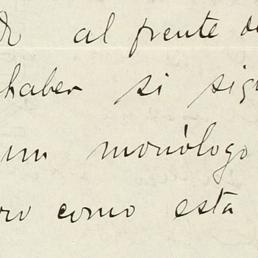 al frente
haber si
un monólogo
como está